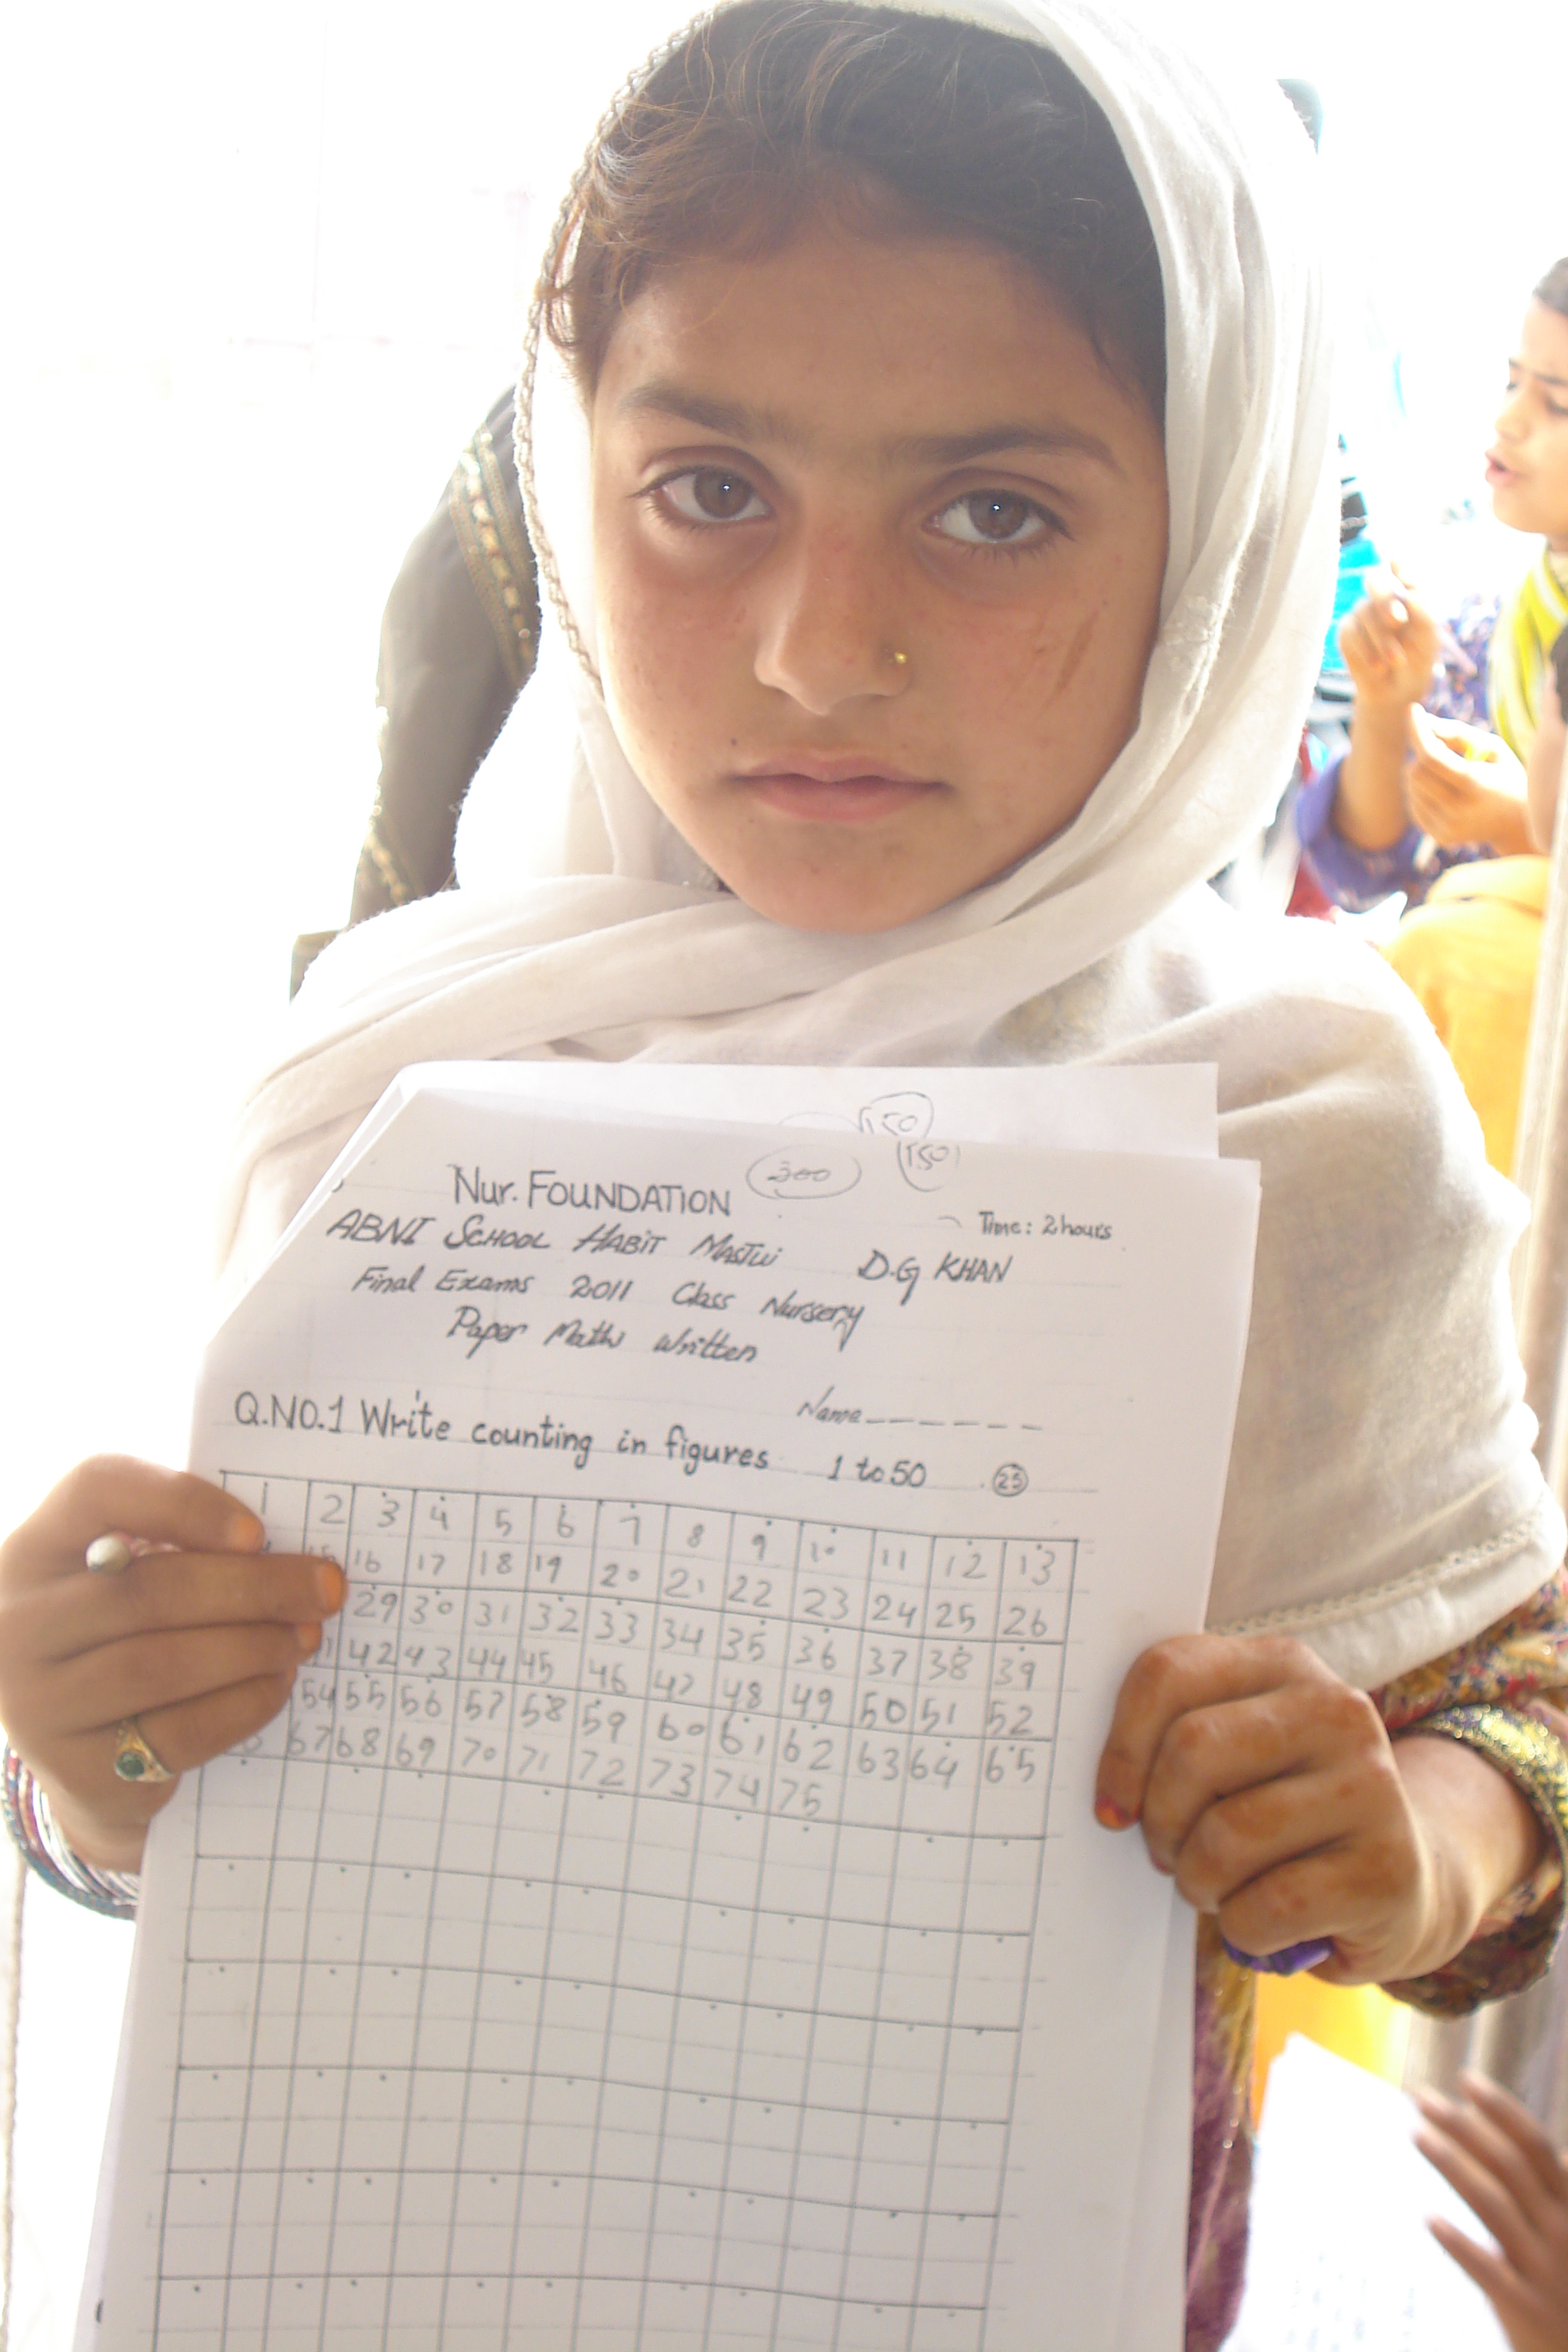 150
300 150
Nur. FOUNDATION
Time: 2 hours
ABNI SCHOOL HABIT MASTUI D.G KHAN
Final Exams 2011 Class Nursery
Paper Math Written
Name
Q.NO.1 Write counting in figures 1 to 50 25
1 2 3 4 5 6 7 8 9 10 11 12 13
15 16 17 18 19 20 21 22 23 24 25 26
29 30 31 32 33 34 35 36 37 38 39
42 43 44 45 46 47 48 49 50 51 52
54 55 56 57 58 59 60 61 62 63 64 65
67 68 69 70 71 72 73 74 75